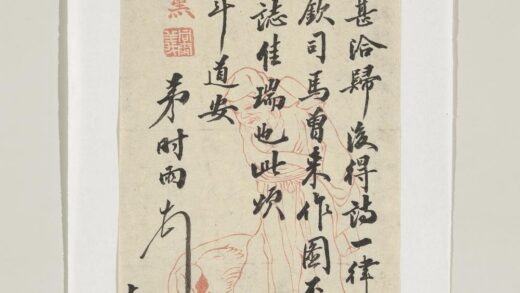 甚洽歸後得詩一律
欽司馬曾来作圖
誌佳瑞也此煩
道安
弟时雨